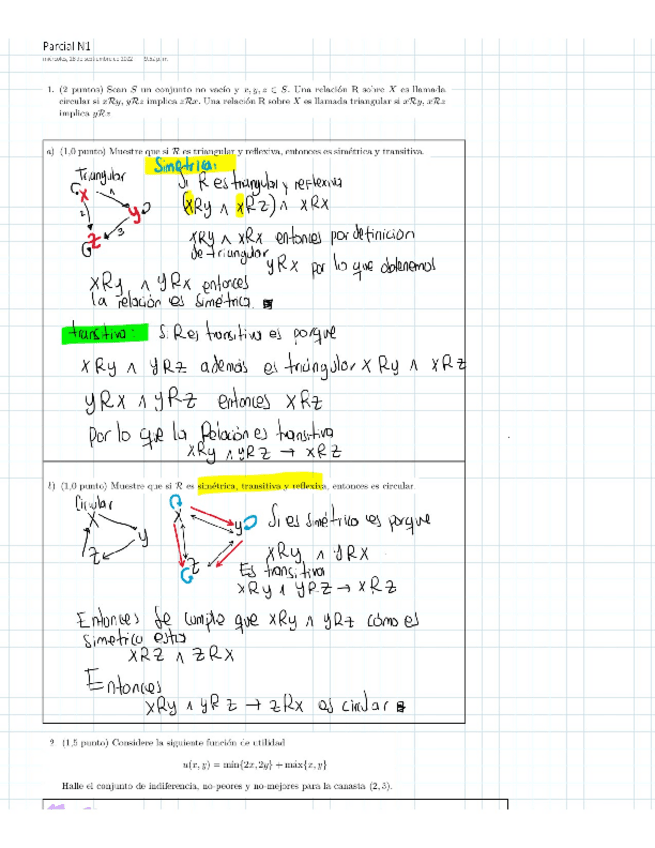 Parcial N1
miércoles, 28 de septiembre de 2022 9:52 p. m.
1. (2 puntos) Sean S un conjunto no vacío y x, y, z ⊂ S. Una relación R sobre X es llamada
circular si xRy, yRz implica zRx. Una relación R sobre X es llamada triangular si xRy, xRz
implica yRz
a) (1,0 punto) Muestre que si R es triangular y reflexiva, entonces es simétrica y transitiva.
Triangular
X
1
y
2
Z
3
Simétrica:
Si R es triangular y reflexiva
(xRy ∧ xRz) ∧ xRx
xRy ∧ xRx entonces por definición
de triangular
yRx por lo que obtenemos
xRy ∧ yRx entonces
la relación es simétrica.
transtiva:
Si R es transitiva es porque
xRy ∧ yRz además es triángular xRy ∧ xRz
yRx ∧ yRz entonces xRz
Por lo que la Relación es transitiva
xRy ∧ yRz → xRz
b) (1,0 punto) Muestre que si R es simétrica, transitiva y reflexiva, entonces es circular.
Circular
X
y
Z
X
y
Z
Si es simétrico es porque
xRy ∧ yRx
Es transitiva
xRy ∧ yRz → xRz
Entonces se cumple que xRy ∧ yRz cómo es
simetrico esto
xRz ∧ zRx
Entonces
xRy ∧ yRz → zRx es circular
2. (1,5 punto) Considere la siguiente función de utilidad
u(x, y) = min{2x, 2y} + máx{x, y}
Halle el conjunto de indiferencia, no-peores y no-mejores para la canasta (2, 3).